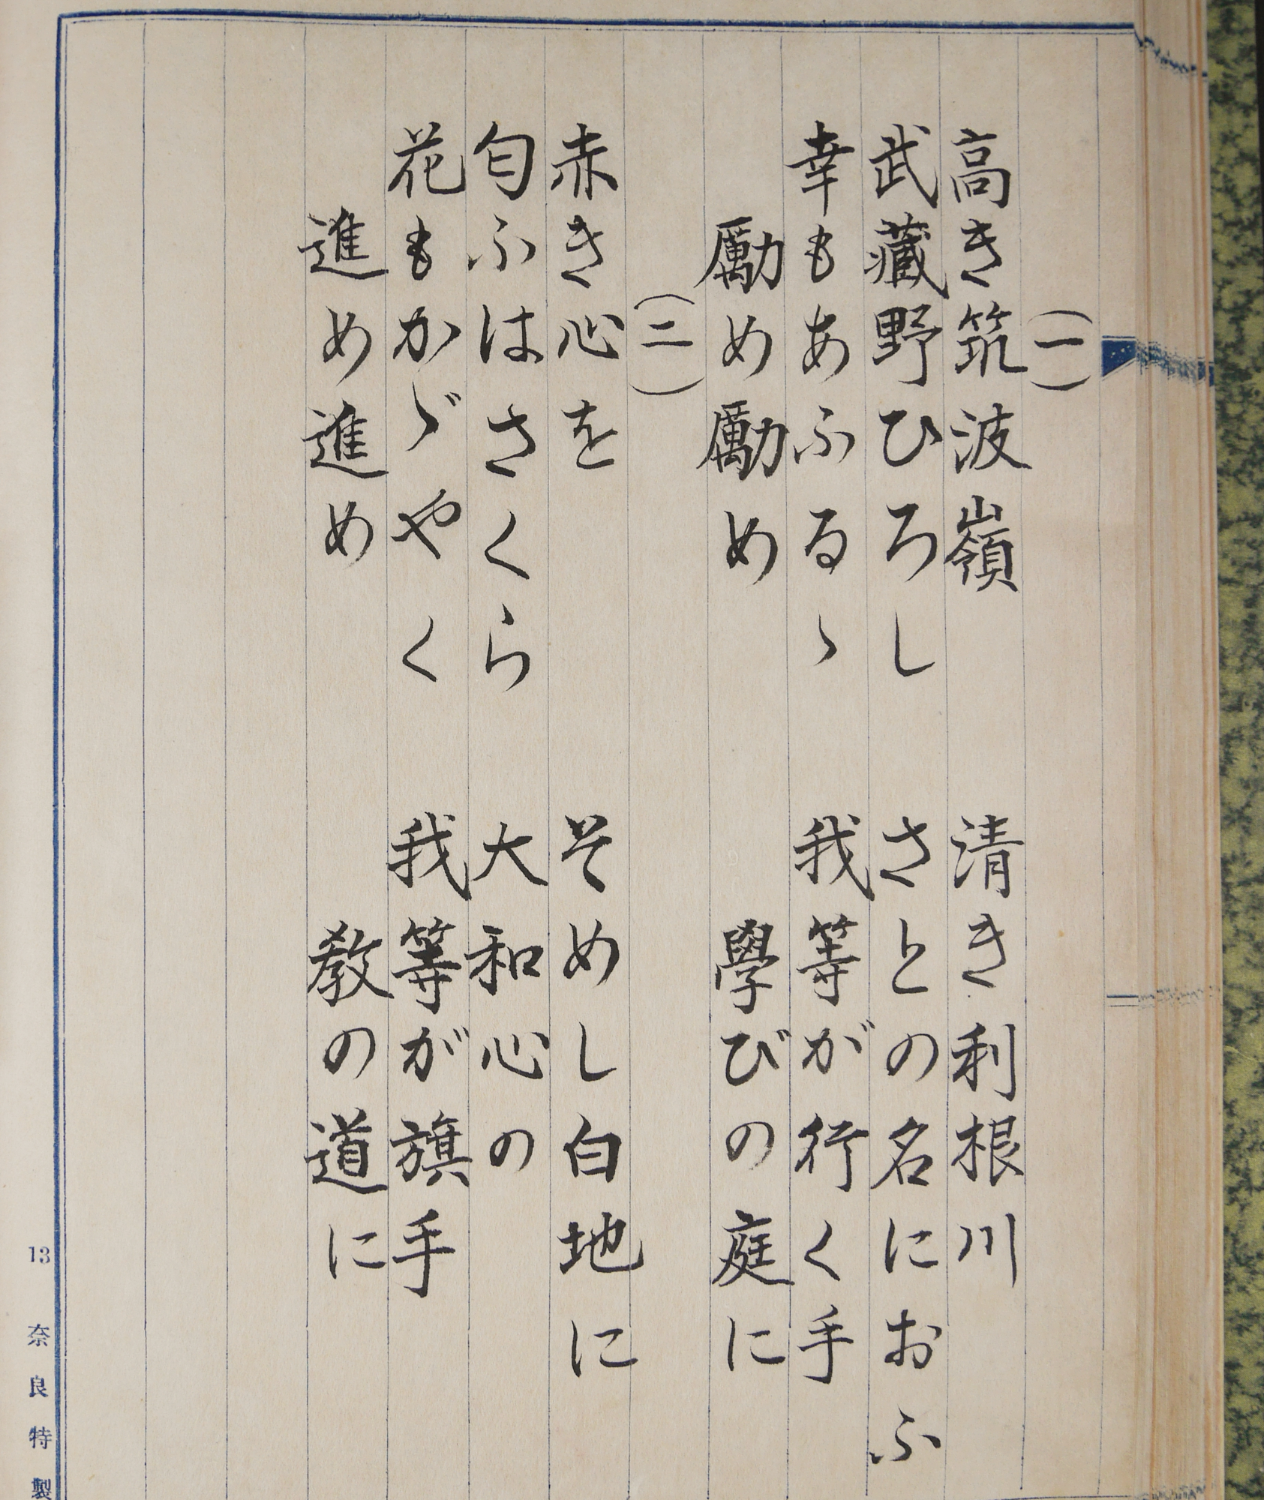 (一)
高き筑波嶺 清き利根川
武藏野ひろし さとの名におふ
幸もあふるゝ 我等が行く手
勵め勵め 學びの庭に
(二)
赤き心を そめし白地に
匂ふはさくら 大和心の
花もかゞやく 我等が旗手
進め進め 教の道に
13 奈良特製